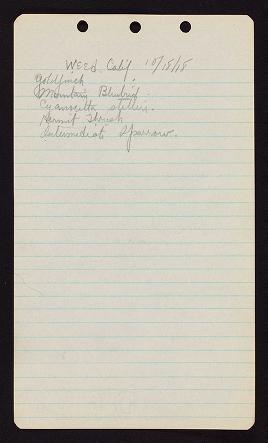 Weed Calif 10/18/18
Goldfinch
Mountain Bluebird
Cyanocitta stelleri.
Hermit Thrush
Intermediate Sparrow.